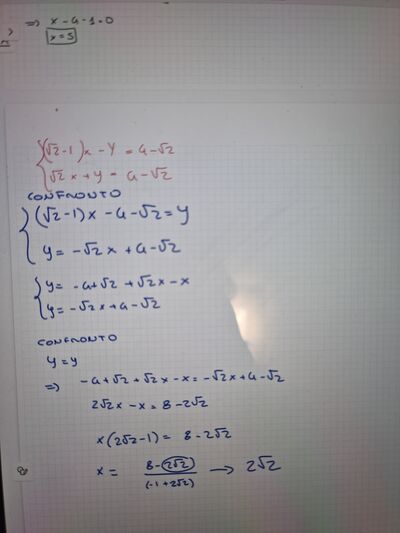 => x - 4 - 1 = 0
x = 5
(√2-1)x - y = 4 - √2
√2x + y = 4 - √2
CONFRONTO
(√2-1)x - 4 - √2 = y
y = -√2x + 4 - √2
y = -4 + √2 + √2x - x
y = -√2x + 4 - √2
CONFRONTO
y = y
=> -4 + √2 + √2x - x = -√2x + 4 - √2
2√2x - x = 8 - 2√2
x(2√2-1) = 8 - 2√2
x = (8 - 2√2)/(-1 + 2√2) → 2√2